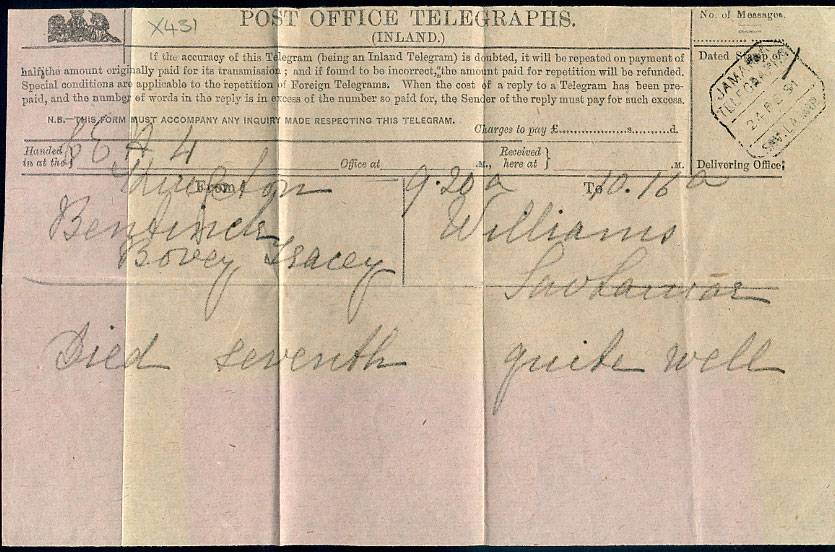 X431
POST OFFICE TELEGRAPHS.
(INLAND.)
No. of Messages.
If the accuracy of this Telegram (being an Inland Telegram) is doubted, it will be repeated on payment of
half the amount originally paid for its transmission; and if found to be incorrect, the amount paid for repetition will be refunded.
Special conditions are applicable to the repetition of Foreign Telegrams. When the cost of a reply to a Telegram has been pre-
paid, and the number of words in the reply is in excess of the number so paid for, the Sender of the reply must pay for such excess.
N.B.—THIS FORM MUST ACCOMPANY ANY INQUIRY MADE RESPECTING THIS TELEGRAM.
Charges to pay £ s. d.
Dated Stamp
JAMAICA
TELEGRAPHS
24 FE 91
SAV-LA-MAR
Delivering Office
Handed in at the
Office at .M.,
Received here at } .M.
Kingston 9.20a 10.16a
From To
Bentinck Williams
Bovey Tracey
Savlamar
Died seventh quite well